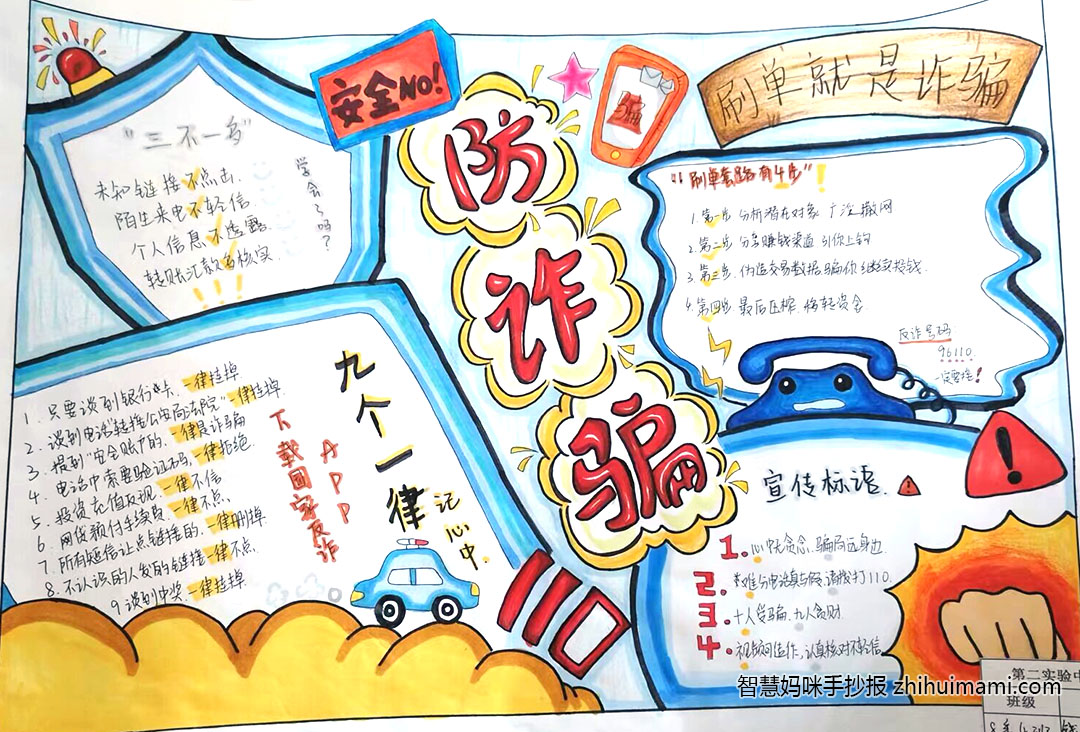 安全NO!
防诈骗
骗
刷单就是诈骗
"三不一多"
未知链接不点击.
陌生来电不轻信
个人信息不透露
转账汇款多核实.
学会了吗?
"刷单套路有4步"!
1.第一步 分析潜在对象 广泛撒网
2.第二步 分享赚钱渠道 引你上钩
3.第三步,伪造交易数据骗你继续投钱.
4.第四步 最后压榨,
反诈号码:
96110.
一定要接!
九个一律
记心中.
1. 只要谈到银行卡,一律挂掉
2. 谈到"电话转接公电局法院"一律挂掉.
3. 提到"安全账户"的,一律是诈骗
4. 电话中索要验证码,一律拒绝.
5. 投资充值返现,一律不信
6. 网贷预付手续费,一律不点,
7. 所有短信让点链接的,一律删掉
8. 不认识的人发的链接一律不点.
9.谈到中奖一律挂掉
下载国家反诈
APP
110
宣传标语.
1.心中无贪念,骗局远身边
2.难分电话真与假,请拨打110.
3.十人受骗,九人贪财.
4.视频,认真核对不轻信
第二实验中
班级
智慧妈咪手抄报 zhihuimami.com